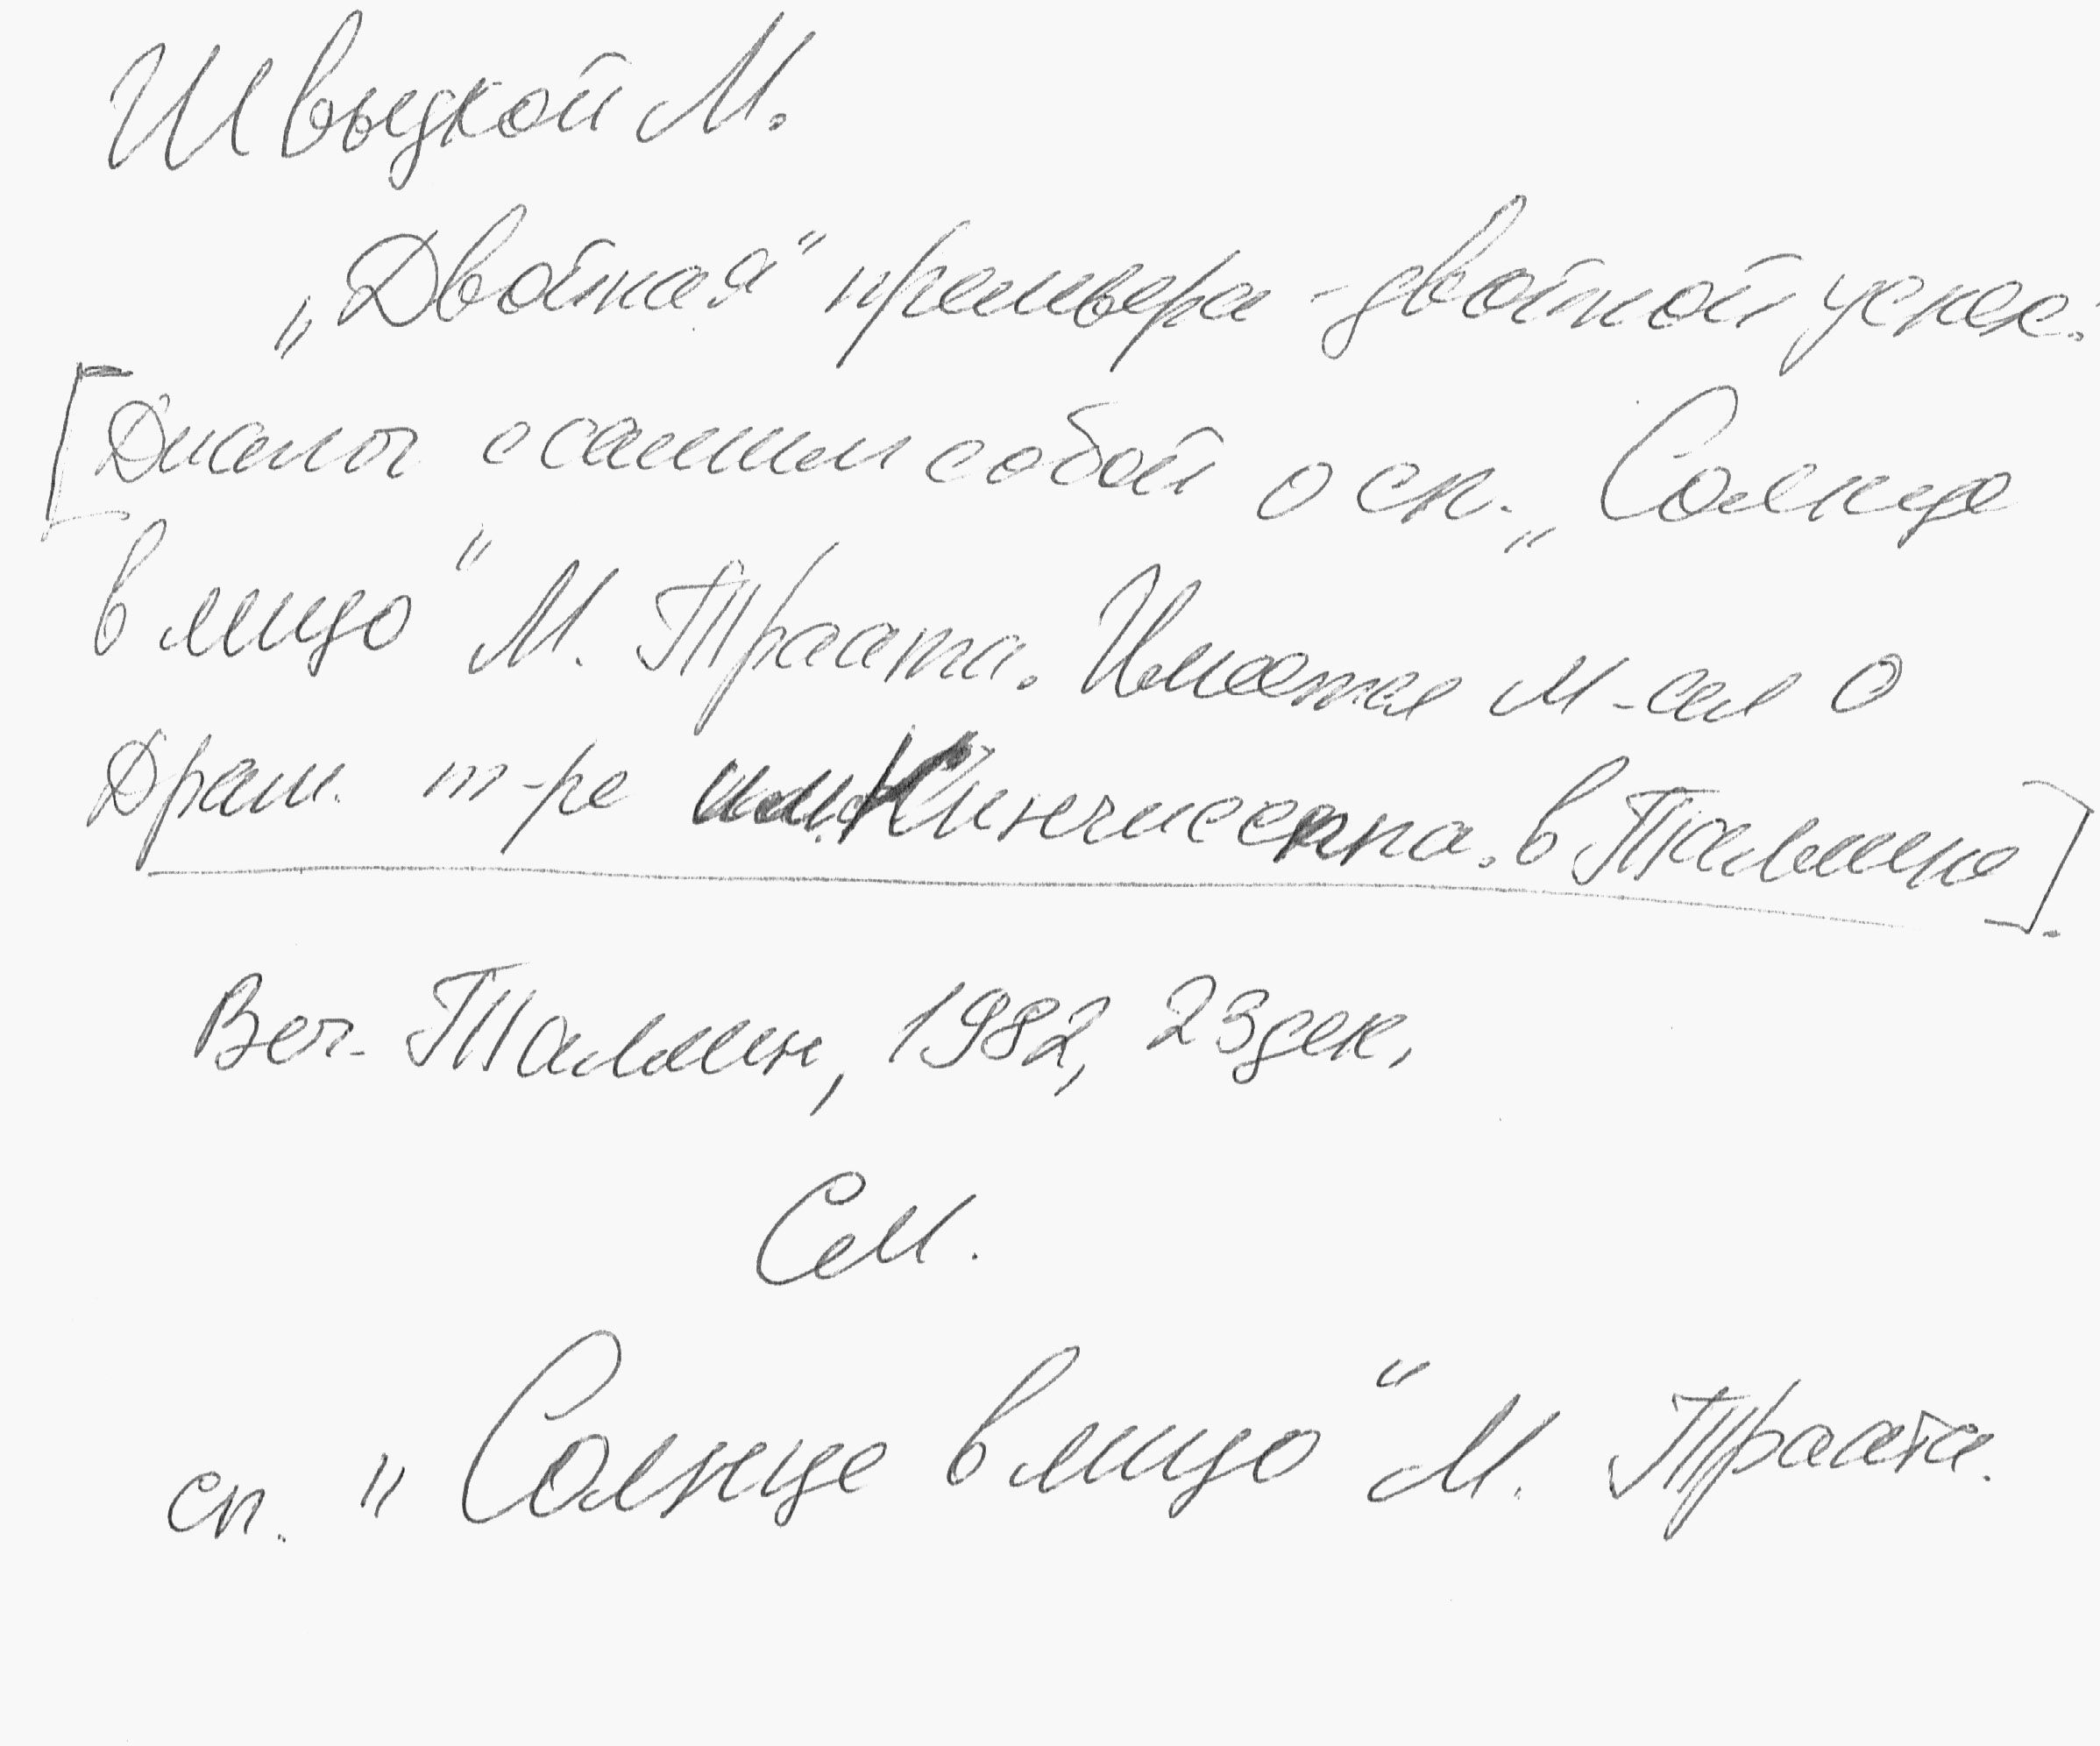 Швыдкой М.
„Двойная“ премьера - двойной успех.
[Диалог с самим собой о сп. „Солнце
в лицо“ М. Траата. Имеется м-ал о
Драм. т-ре им. Кингисеппа. в Таллине].
Веч. Таллин, 1982, 23 дек.
См.
сп. „Солнце в лицо“ М. Траата.